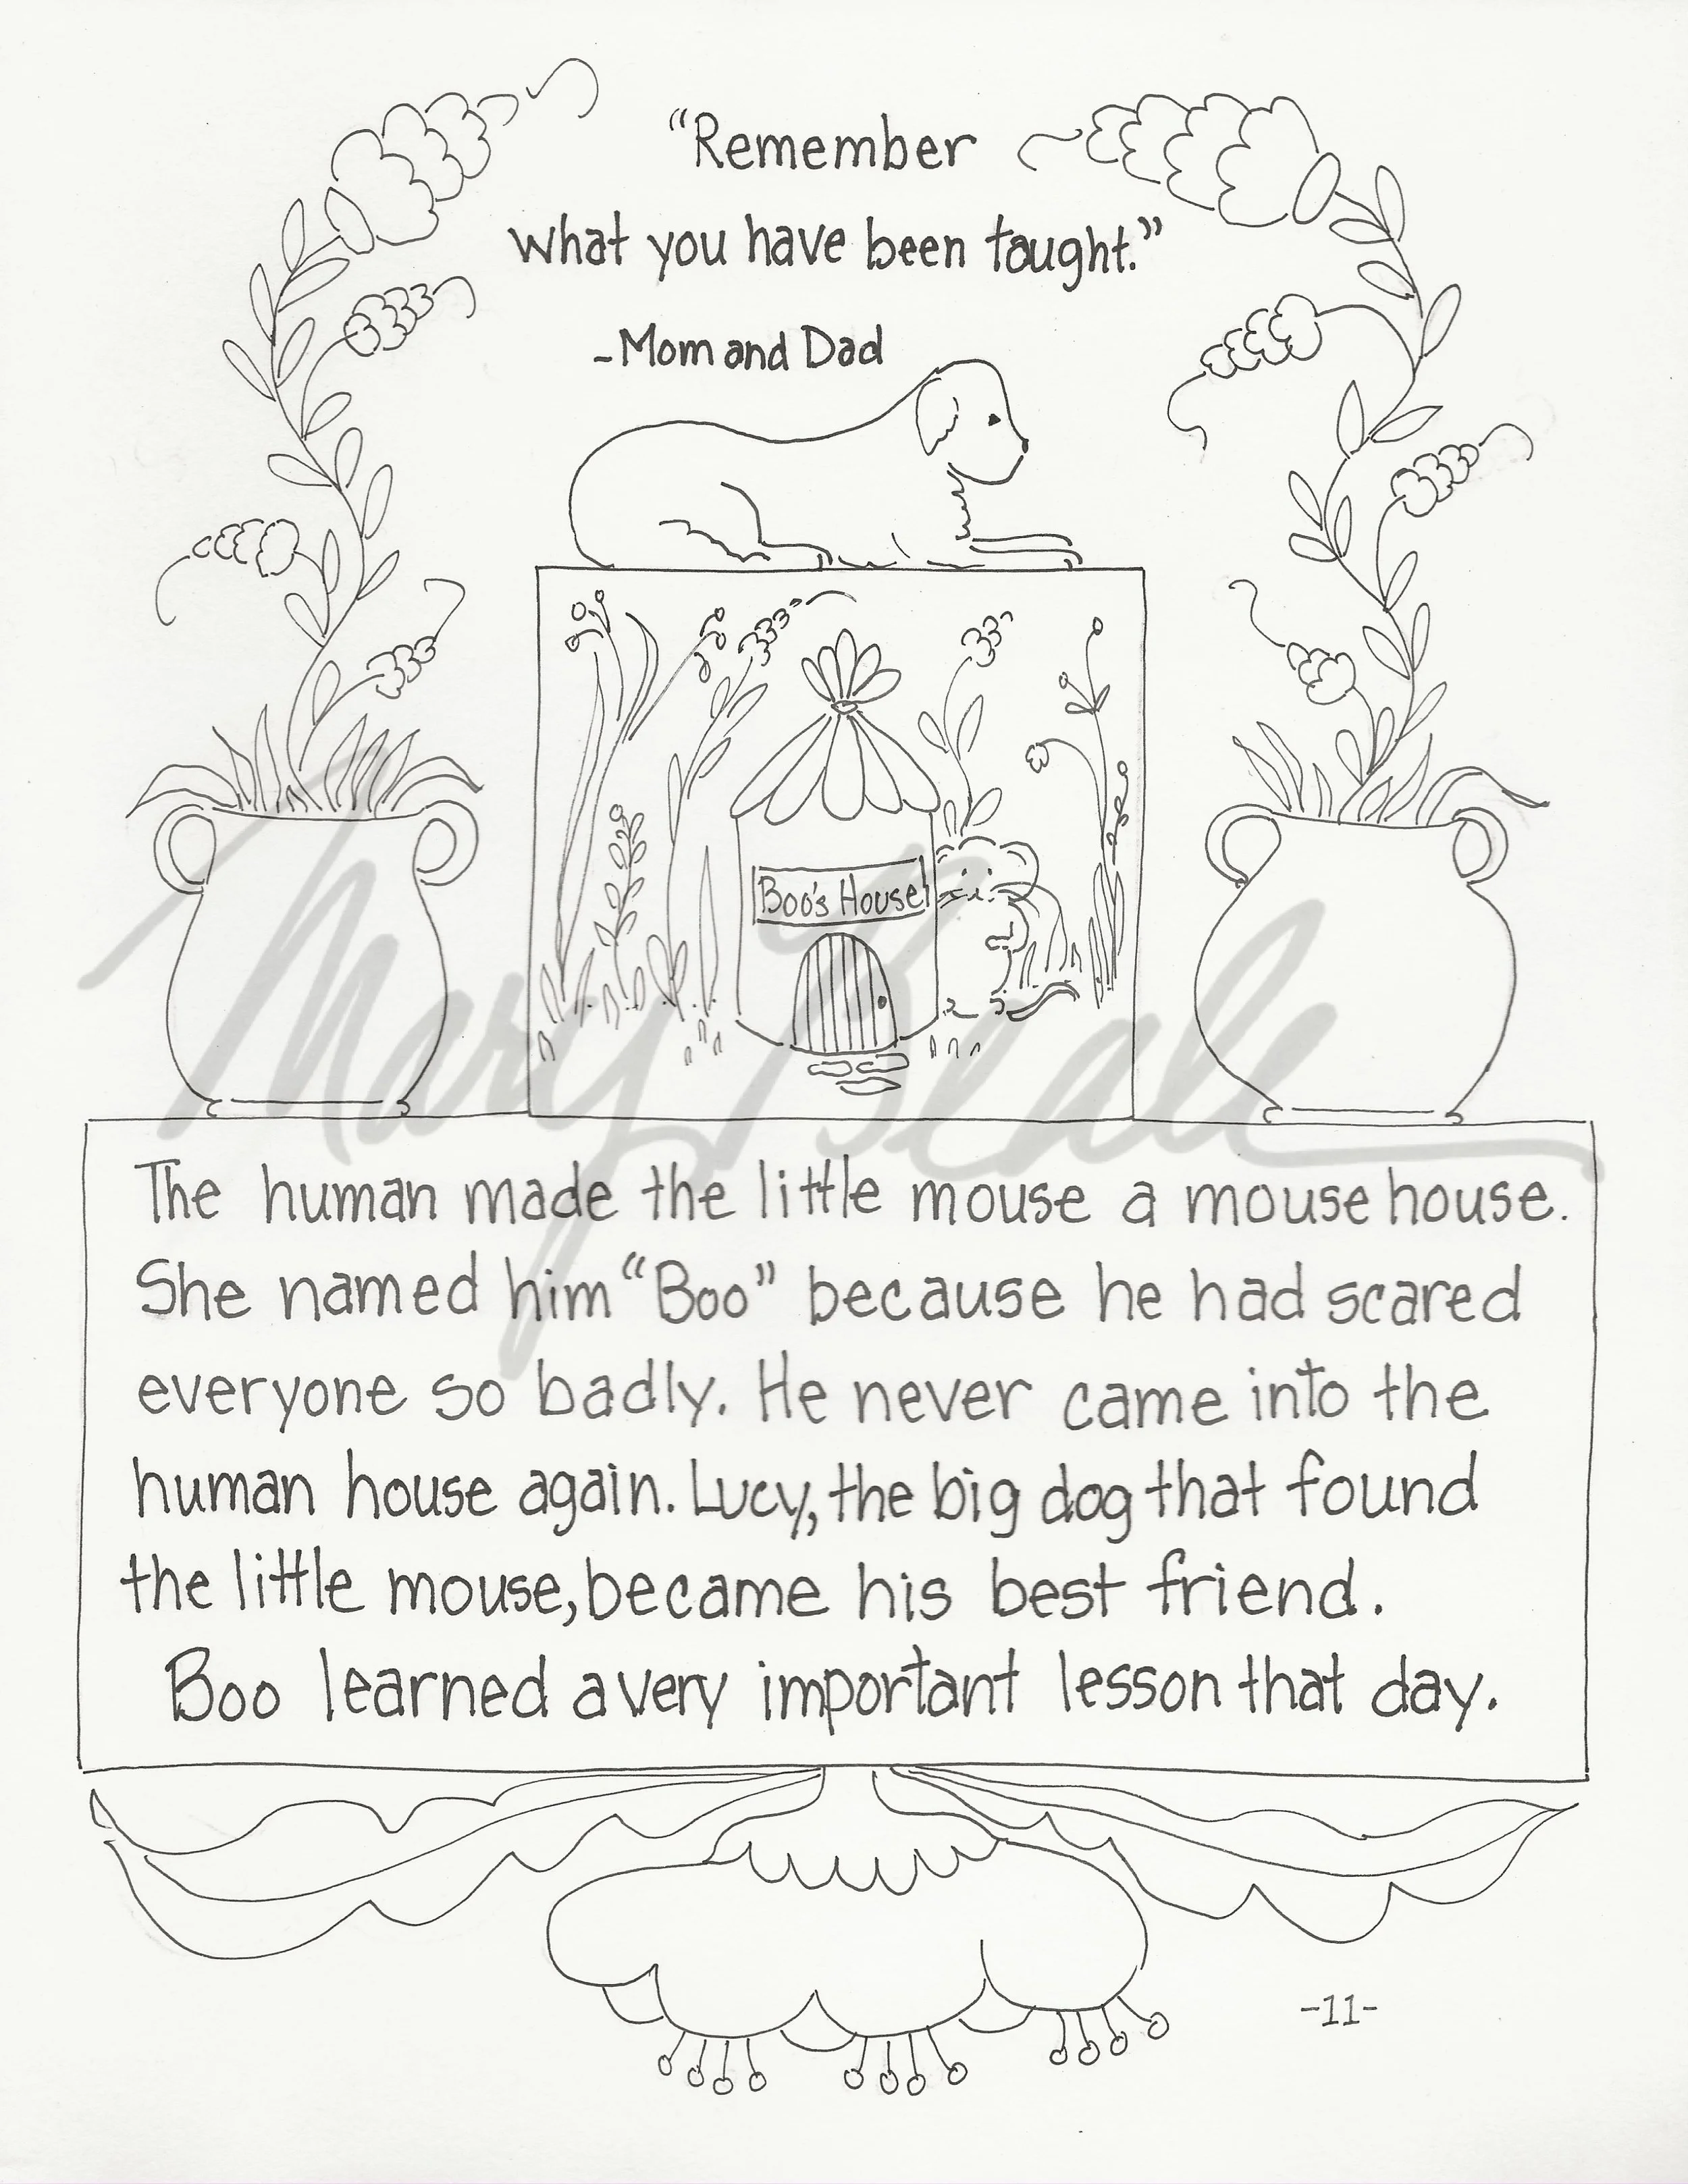 “Remember
what you have been taught.”
-Mom and Dad
Boo's House
Mary Beale
The human made the little mouse a mouse house.
She named him “Boo” because he had scared
everyone so badly. He never came into the
human house again. Lucy, the big dog that found
the little mouse, became his best friend.
Boo learned a very important lesson that day.
-11-